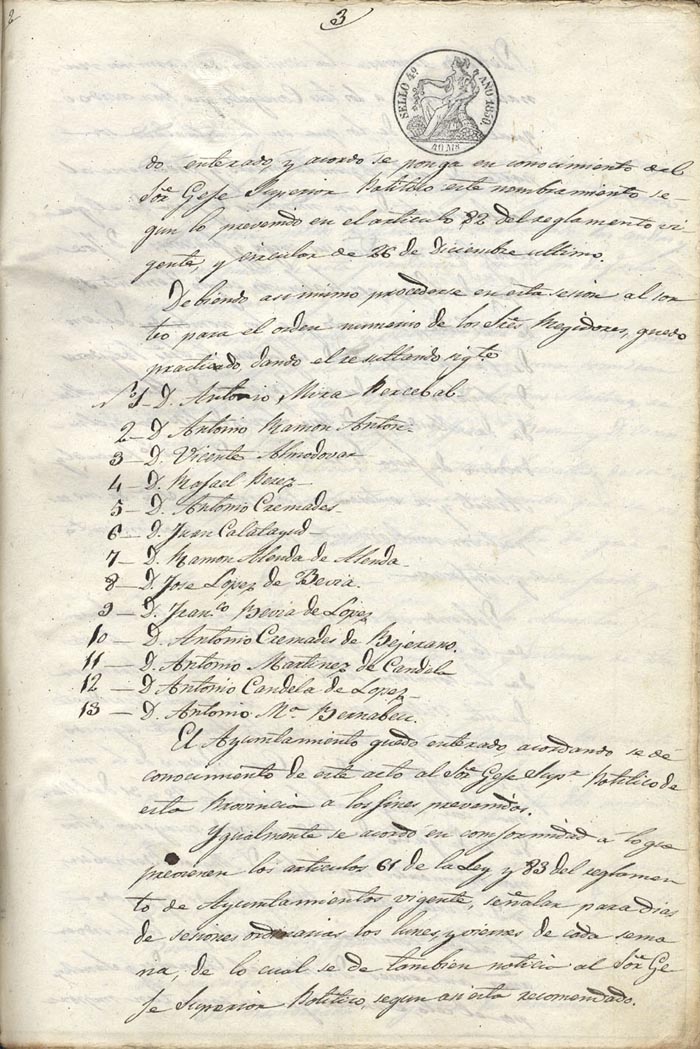 3
SELLO 4º AÑO 1850.
40 Ms
do enterado, y acordo se ponga en conocimiento del
Sór. Gefe Superior Politico este nombramiento se-
gun lo prevenido en el articulo 82 del reglamento vi-
gente, y circular de 26 de diciembre ultimo.
Debiendo asimismo procederse en esta sesion al sor-
teo para el orden numerico de los Sres Regidores, quedo
practicado dando el resultando sigte
Nº 1 - D. Antonio Mira Percebal.
2 - D Antonio Ramon Anton.
3 - D. Vicente Almodovar
4 - D. Rafael Perez
5 - D. Antonio Cremades
6 - D. Juan Calatayud
7 - D. Ramon Alenda de Alenda
8 - D. Jose Lopez de Bevia.
9 - D. Franco Bevia de Lopez
10 - D. Antonio Cremades de Bejerano.
11 - D. Antonio Martinez de Candela
12 - D Antonio Candela de Lopez
13 - D. Antonio Ma Bernabeu.
El Ayuntamiento quedo enterado acordando se dé
conocimiento de este acto al Sór Gefe Supr Politico de
esta Provincia a los fines prevenidos.
Igualmente se acordó en conformidad a lo que
previenen los articulos 61 de la Ley y 83 del reglamen
to de Ayuntamientos vigente, señalar para dias
de sesiones ordinarias los lunes, y viernes de cada sema
na, de lo cual se de tambien noticia al Sór Ge
fe Superior Politico, segun asi esta recomendado.